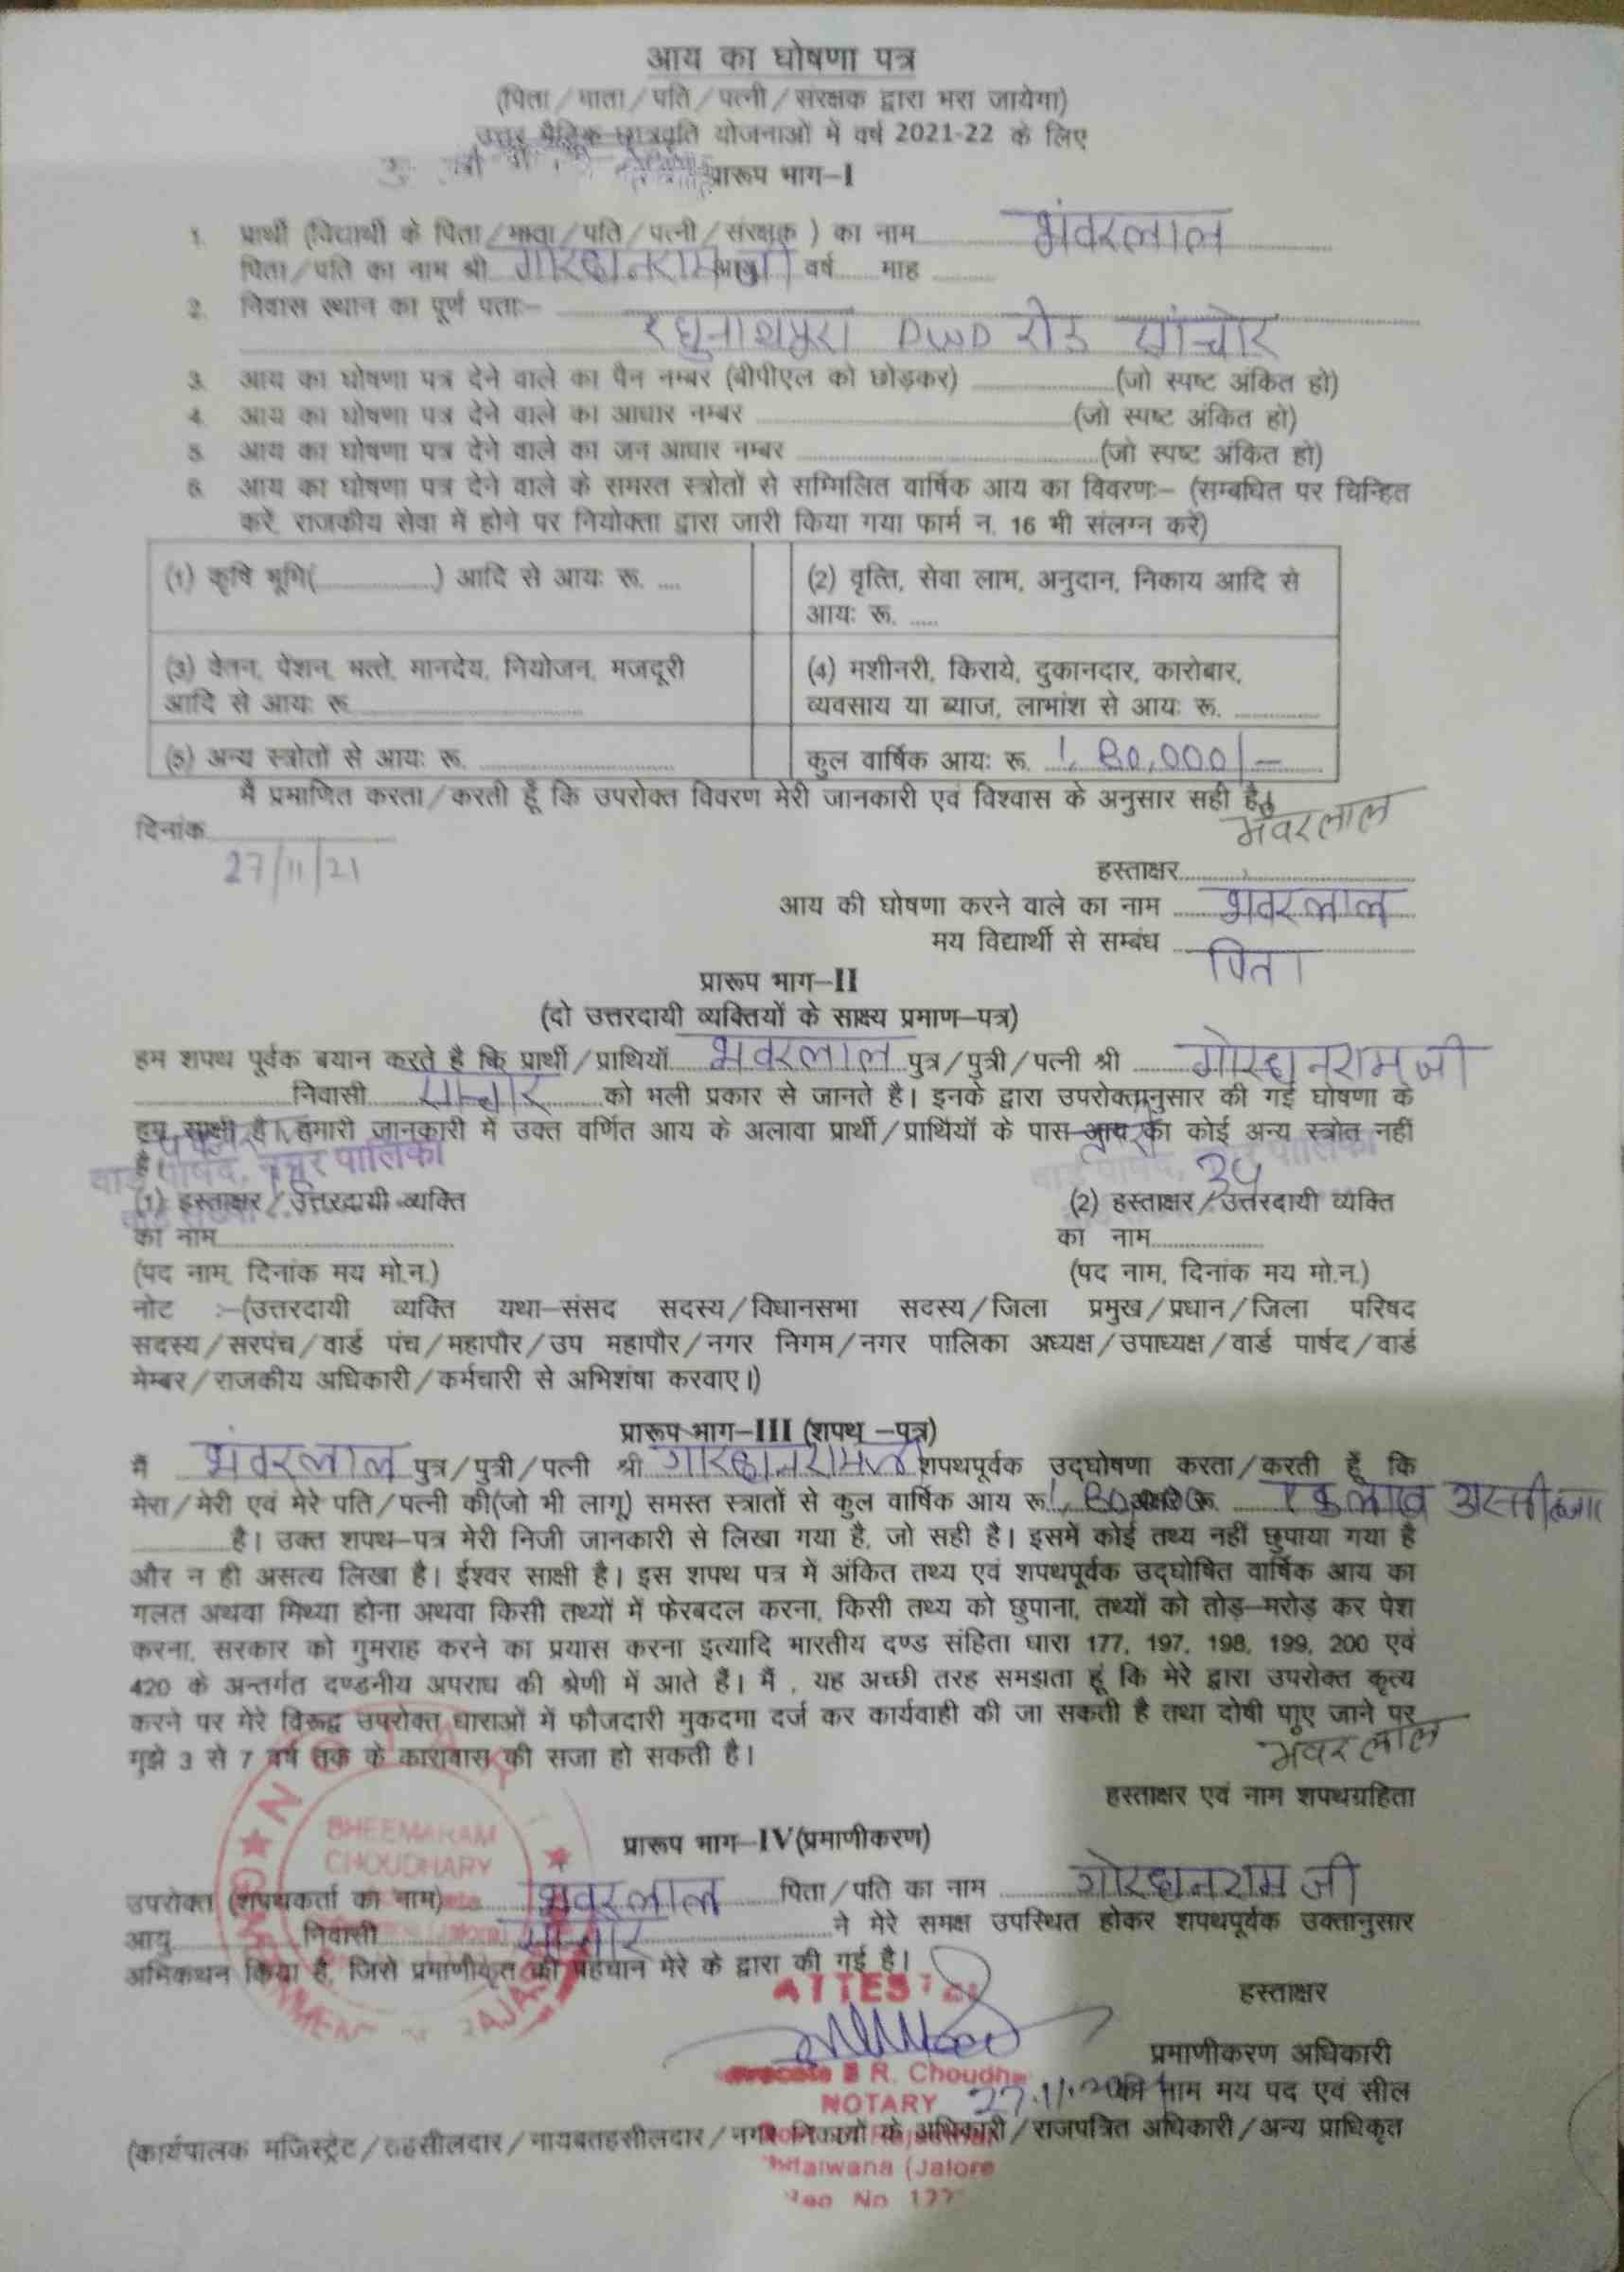 आय का घोषणा पत्र
(पिता/माता/पति/पत्नी/संरक्षक द्वारा भरा जायेगा)
उत्तर मैट्रिक छात्रवृति योजनाओं में वर्ष 2021-22 के लिए
प्रारूप भाग-I
1. प्रार्थी (विद्यार्थी के पिता/माता/पति/पत्नी/संरक्षक ) का नाम भंवरलाल
पिता/पति का नाम श्री गोरधनरामजी आयु वर्ष...... माह ............
2. निवास स्थान का पूर्ण पता:-
रघुनाथपुरा PWD रोड सांचोर
3. आय का घोषणा पत्र देने वाले का पैन नम्बर (बीपीएल को छोड़कर) ....................(जो स्पष्ट अंकित हो)
4. आय का घोषणा पत्र देने वाले का आधार नम्बर ....................(जो स्पष्ट अंकित हो)
5. आय का घोषणा पत्र देने वाले का जन आधार नम्बर ....................(जो स्पष्ट अंकित हो)
6. आय का घोषणा पत्र देने वाले के समस्त स्त्रोतों से सम्मिलित वार्षिक आय का विवरण:- (सम्बधित पर चिन्हित
करें, राजकीय सेवा में होने पर नियोक्ता द्वारा जारी किया गया फार्म न. 16 भी संलग्न करें)
(1) कृषि भूमि(..................) आदि से आयः रू. ....
(2) वृत्ति, सेवा लाभ, अनुदान, निकाय आदि से
आयः रू. .....
(3) वेतन, पेंशन, भत्ते, मानदेय, नियोजन, मजदूरी
आदि से आयः रू....................
(4) मशीनरी, किराये, दुकानदार, कारोबार,
व्यवसाय या ब्याज, लाभांश से आयः रू. ............
(5) अन्य स्त्रोतों से आयः रू. ....................
कुल वार्षिक आयः रू. 1,80,000/-
मै प्रमाणित करता/करती हूँ कि उपरोक्त विवरण मेरी जानकारी एवं विश्वास के अनुसार सही है।
दिनांक
भंवरलाल
27/11/21
हस्ताक्षर....................
आय की घोषणा करने वाले का नाम भंवरलाल
मय विद्यार्थी से सम्बंध पिता
प्रारूप भाग-II
(दो उत्तरदायी व्यक्तियों के साक्ष्य प्रमाण-पत्र)
हम शपथ पूर्वक बयान करते है कि प्रार्थी/प्राथियों भवरलाल पुत्र/पुत्री/पत्नी श्री गोरधनरामजी
निवासी सांचोर को भली प्रकार से जानते है। इनके द्वारा उपरोक्तानुसार की गई घोषणा के
हम साक्षी है। हमारी जानकारी में उक्त वर्णित आय के अलावा प्रार्थी/प्रार्थियों के पास आय का कोई अन्य स्त्रोत नहीं
है।
वार्ड पार्षद, नगर पालिका
34
(1) हस्ताक्षर/उत्तरदायी व्यक्ति
(2) हस्ताक्षर/उत्तरदायी व्यक्ति
का नाम....................
का नाम....................
(पद नाम, दिनांक मय मो.न.)
(पद नाम, दिनांक मय मो.न.)
नोट :-(उत्तरदायी व्यक्ति यथा-संसद सदस्य/विधानसभा सदस्य/जिला प्रमुख/प्रधान/जिला परिषद
सदस्य/सरपंच/वार्ड पंच/महापौर/उप महापौर/नगर निगम/नगर पालिका अध्यक्ष/उपाध्यक्ष/वार्ड पार्षद/वार्ड
मेम्बर/राजकीय अधिकारी/कर्मचारी से अभिशंषा करवाए।)
प्रारूप भाग-III (शपथ -पत्र)
मै भंवरलाल पुत्र/पुत्री/पत्नी श्री गोरधनरामजी शपथपूर्वक उद्घोषणा करता/करती हूँ कि
मेरा/मेरी एवं मेरे पति/पत्नी की(जो भी लागू) समस्त स्त्रातों से कुल वार्षिक आय रू 1,80,000 एक लाख अस्सी हजार
है। उक्त शपथ-पत्र मेरी निजी जानकारी से लिखा गया है, जो सही है। इसमें कोई तथ्य नहीं छुपाया गया है
और न ही असत्य लिखा है। ईश्वर साक्षी है। इस शपथ पत्र में अंकित तथ्य एवं शपथपूर्वक उद्घोषित वार्षिक आय का
गलत अथवा मिथ्या होना अथवा किसी तथ्यों में फेरबदल करना, किसी तथ्य को छुपाना, तथ्यों को तोड़-मरोड़ कर पेश
करना, सरकार को गुमराह करने का प्रयास करना इत्यादि भारतीय दण्ड संहिता धारा 177, 197, 198, 199, 200 एवं
420 के अन्तर्गत दण्डनीय अपराध की श्रेणी में आते हैं। मैं , यह अच्छी तरह समझता हूं कि मेरे द्वारा उपरोक्त कृत्य
करने पर मेरे विरूद्व उपरोक्त धाराओं में फौजदारी मुकदमा दर्ज कर कार्यवाही की जा सकती है तथा दोषी पाए जाने पर
मुझे 3 से 7 वर्ष तक के कारावास की सजा हो सकती है।
भंवरलाल
हस्ताक्षर एवं नाम शपथग्रहिता
NOTARY
BHEEMARAM
CHOUDHARY
प्रारूप भाग-IV(प्रमाणीकरण)
उपरोक्त (शपथकर्ता का नाम) भंवरलाल पिता/पति का नाम गोरधनरामजी
आयु निवासी सांचोर ने मेरे समक्ष उपस्थित होकर शपथपूर्वक उक्तानुसार
अभिकथन किया है, जिसे प्रमाणीकृत की पहचान मेरे के द्वारा की गई है।
हस्ताक्षर
प्रमाणीकरण अधिकारी
B R. Choudha
NOTARY
का नाम मय पद एवं सील
(कार्यपालक मजिस्ट्रेट/तहसीलदार/नायबतहसीलदार/नगर निकायों के अधिकारी/राजपत्रित अधिकारी/अन्य प्राधिकृत
(Jalore